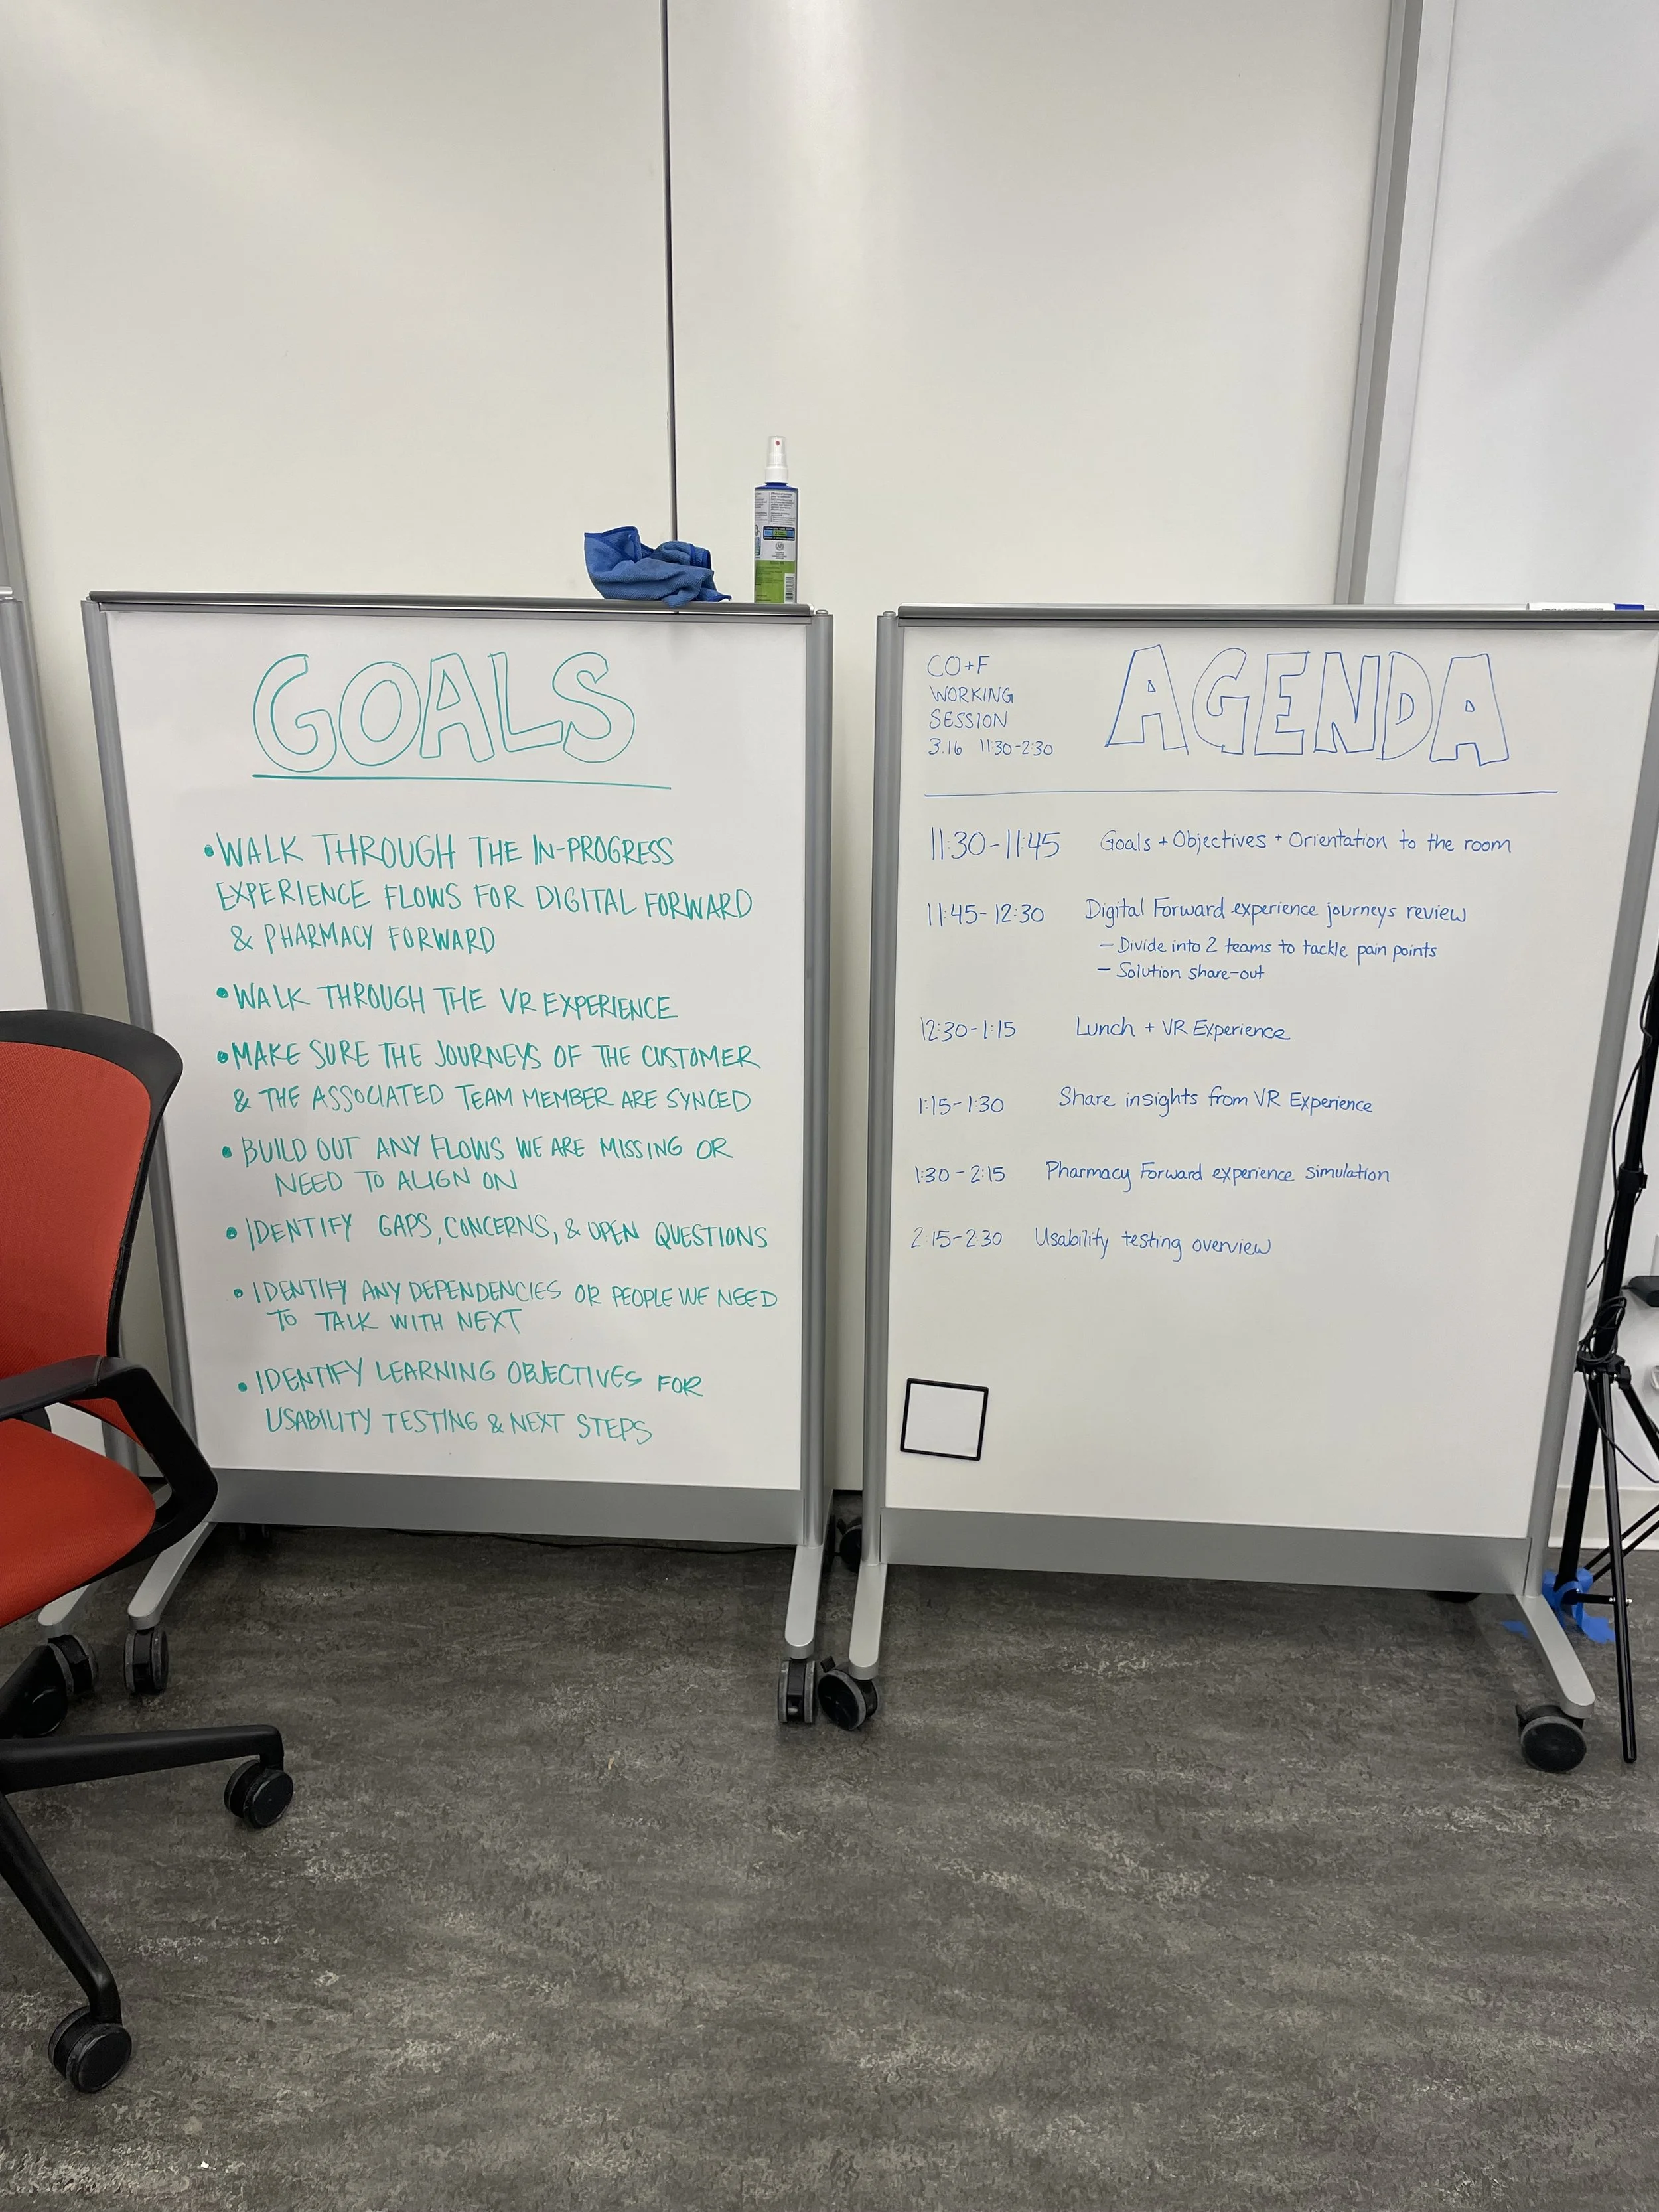 GOALS
• WALK THROUGH THE IN-PROGRESS
EXPERIENCE FLOWS FOR DIGITAL FORWARD
& PHARMACY FORWARD
• WALK THROUGH THE VR EXPERIENCE
• MAKE SURE THE JOURNEYS OF THE CUSTOMER
& THE ASSOCIATED TEAM MEMBER ARE SYNCED
• BUILD OUT ANY FLOWS WE ARE MISSING OR
NEED TO ALIGN ON
• IDENTIFY GAPS, CONCERNS, & OPEN QUESTIONS
• IDENTIFY ANY DEPENDENCIES OR PEOPLE WE NEED
TO TALK WITH NEXT
• IDENTIFY LEARNING OBJECTIVES FOR
USABILITY TESTING & NEXT STEPS
CO+F
WORKING
SESSION
3.16 11:30-2:30
AGENDA
11:30-11:45 Goals + Objectives + Orientation to the room
11:45-12:30 Digital Forward experience journeys review
- Divide into 2 teams to tackle pain points
- Solution share-out
12:30-1:15 Lunch + VR Experience
1:15-1:30 Share insights from VR Experience
1:30-2:15 Pharmacy Forward experience simulation
2:15-2:30 Usability testing overview